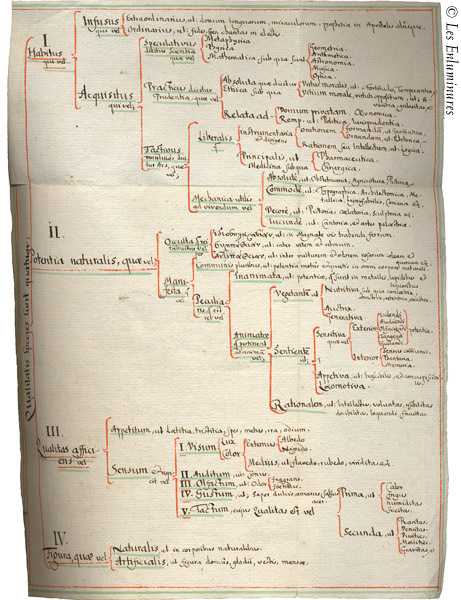 © Les Enluminures
Qualitatis species sunt quatuor
I.
Habitus
qui vel
Infusus
qui vel
Extraordinarius, ut: donum linguarum, miraculorum, prophetiæ in Apostolis aliisque.
Ordinarius, ut: fides, spes, charitas in electis
Acquisitus
qui vel
Speculativus
dicitur scientia
quæ vel
Metaphysica
Physica
Mathematica, sub qua sunt
Geometria
Arithmetica
Astronomia
Musica
Optica
Practicus dicitur
Prudentia, quæ vel
Absoluta quæ dicitur
Ethica sub qua
Virtus moralis, ut: Fortitudo, Temperantia
Vitium morale, virtuti oppositum, ut:
Relata ad
Domum privatam. Œconomica.
Remp. ut: Politica, Jurisprudentia.
Factivus
dicitur
Ars, quæ
vel
Liberalis
Instrumentaria
Orationem
formandam, ut Grammatica
ornandam, ut Rhetorica
Rationem seu Intellectum, ut: Logica.
Principalis, ut
Medicina sub qua
Pharmaceutica.
Chirurgica.
Mechanica utilis
ad vivendum vel
Absolute, ut: Obstetricaria, Agricultura
Commode, ut: Typographica, Architectonica
Decore, ut: Pictoria, cælatoria, sculptoria
Iucunde, ut:
II.
Potentia naturalis, quæ vel
Occulta
Manifesta
vel
Communis pluribus, ut: potentia motus
Peculiaris
Inanimata, ut: potentiæ, quæ sunt in metallis, lapidibus et
Animatæ
Vegetante, ut
Nutritiva
Auctrix
Generativa
Sentiente
Sensitiva
quæ vel
Exterior
Videndi
Audiendi
Olfaciendi
Gustandi
Tangendi
potentia.
Interior
Sensus communis.
Phantasia
Memoria.
Appetiva, ut:
Locomotiva.
Rationalem, ut: Intellectus, voluntas
III.
Qualitas afficiens
vel
Appetitum, ut Lætitia, tristitia, spes, metus, ira, odium.
Sensum
vel
I. Visum
Lux
Color
Extremus
Albedo
Nigredo
Medius, ut: flavedo, rubedo, viriditas &c.
II. Auditum, ut: Sonus
III. Olfactum, ut: Odor
fragrans
fœtidus
IV. Gustum, ut: Sapor dulcis, amarus, salsus
acer.
V. Tactum, cujus Qualitas est vel
Prima, ut
Calor
frigus
humiditas
siccitas.
Secunda, ut
Raritas
Densitas
Durities
Mollities
Gravitas &c.
IV.
Figura, quæ vel
Naturalis est in corporibus naturalibus.
Artificialis, ut figura domus, gladii, vestis, mensæ.